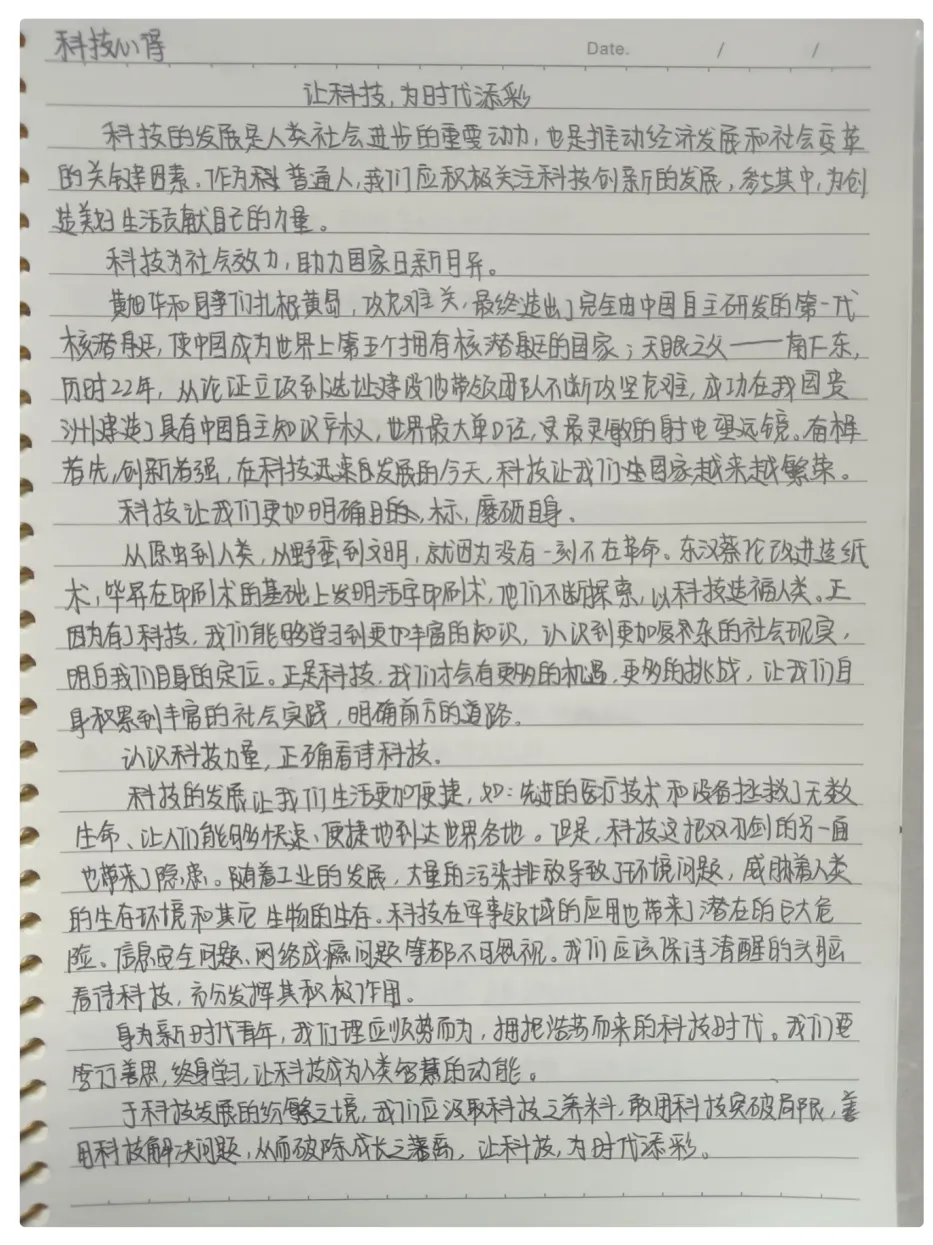 科技心得
Date. / /
让科技,为时代添彩
科技的发展是人类社会进步的重要动力,也是推动经济发展和社会变革
的关键因素。作为普通人,我们应积极关注科技创新的发展,参与其中,为创
造美好生活贡献自己的力量。
科技为社会效力,助力国家日新月异。
黄旭华和同事们扎根黄岛,攻克难关,最终造出了完全由中国自主研发的第一代
核潜艇,使中国成为世界上第五个拥有核潜艇的国家;天眼之父——南仁东,
历时22年,从论证立项到选址建设他带领团队不断攻坚克难,成功在我国贵
州建造了具有中国自主知识产权,世界最大单口径,最灵敏的射电望远镜。有棋
者先,创新者强,在科技迅速发展的今天,科技让我们国家越来越繁荣。
科技让我们更加明确目标,磨砺自身。
从原虫到人类,从野蛮到文明,就因为没有一刻不在革命。东汉蔡伦改进造纸
术,毕昇在印刷术的基础上发明活字印刷术,他们不断探索,以科技造福人类。正
因为有了科技,我们能够学习到更加丰富的知识,认识到更加复杂的社会现实,
明白我们自身的定位。正是科技,我们才会有更多的机遇,更多的挑战,让我们自
身积累到丰富的社会实践,明确前方的道路。
认识科技力量,正确看待科技。
科技的发展让我们生活更加便捷,如:先进的医疗技术和设备拯救了无数
生命、让人们能够快速、便捷地到达世界各地。但是,科技这把双刃剑的另一面
也带来了隐患。随着工业的发展,大量的污染排放导致了环境问题,威胁着人类
的生存环境和其它生物的生存。科技在军事领域的应用也带来了潜在的巨大危
险。信息安全问题、网络成瘾问题等都不可忽视。我们应该保持清醒的头脑
看待科技,充分发挥其积极作用。
身为新时代青年,我们理应顺势而为,拥抱浩荡而来的科技时代。我们要
笃行善思,终身学习,让科技成为人类智慧的动能。
于科技发展的纷繁之境,我们应汲取科技之养料,敢用科技突破局限,善
用科技解决问题,从而破除成长之藩篱,让科技,为时代添彩。